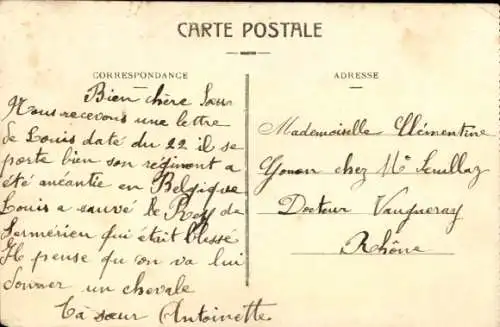 CARTE POSTALE
CORRESPONDANCE
ADRESSE
Bien chère Sœur
Nous recevons une lettre
de Louis daté du 22 il se
porte bien son régiment a
été anéantie en Belgique
Louis a sauvé le
qui était blessé
Il pense qu on va lui
donner un chevale
Ta sœur Antoinette
Mademoiselle Clémentine
chez Mr
Docteur Vaugneray
Rhône